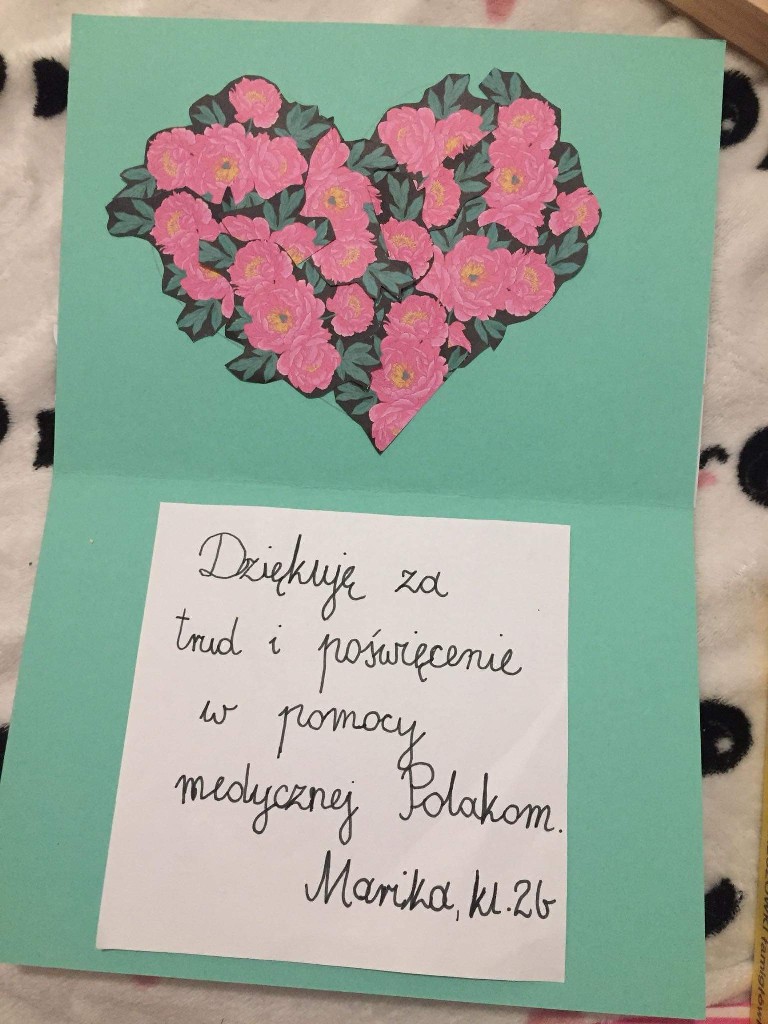 Dziękuję za
trud i poświęcenie
w pomocy
medycznej Polakom.
Marika, kl. 2b